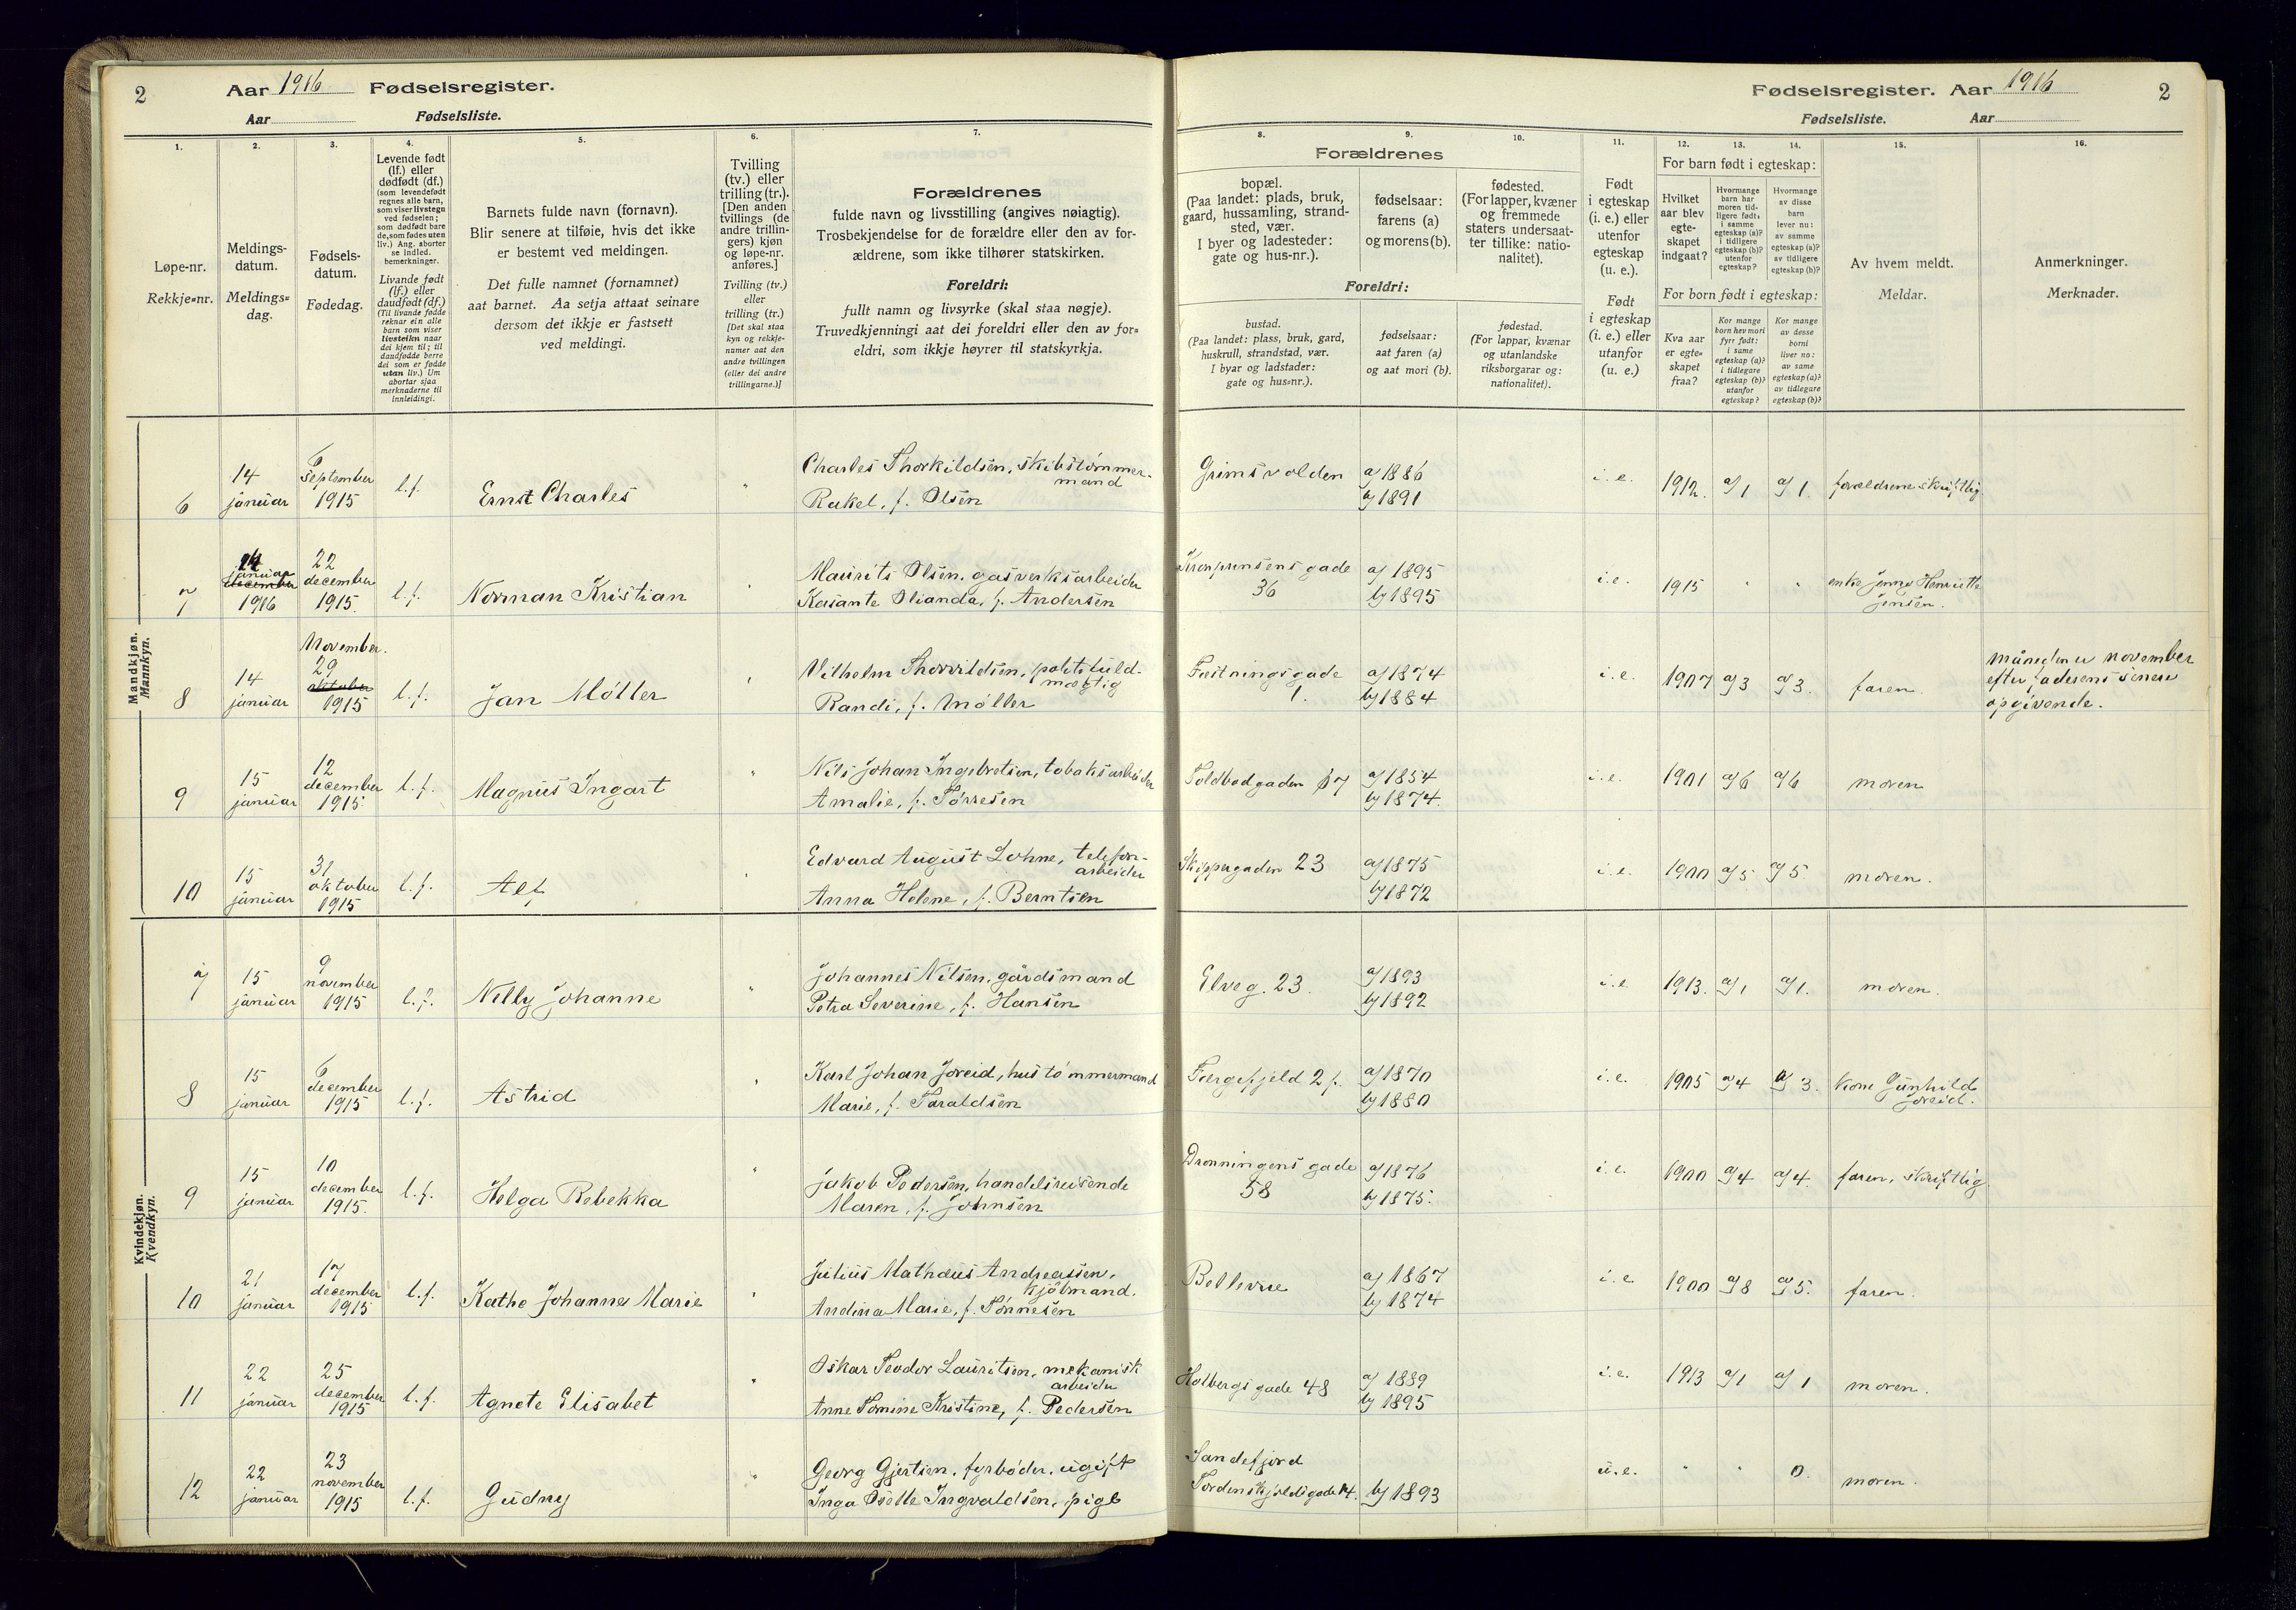 2
Aar 1916 Fødselsregister.
Aar Fødselsliste.
Fødselsregister. Aar 1916
2
Fødselsliste. Aar
1.
Løpe-nr.
Rekkje=nr.
2.
Meldings-
datum.
Meldings=
dag.
3.
Fødsels-
datum.
Fødedag.
4.
Levende født
(lf.) eller
dødfødt (df.)
(som levendefødt
regnes alle barn,
som viser livstegn
ved fødselen;
som dødfødt bare
de, som fødes uten
liv.) Ang. aborter
se indled.
bemerkninger.
Livande født
(lf.) eller
daudfødt (df.)
(Til livande fødde
reknar ein alle
barn som viser
livsteikn naar
dei kjem til; til
daudfødde berre
dei som er fødde
utan liv.) Um
abortar sjaa
merknaderne til
innleidingi.
5.
Barnets fulde navn (fornavn).
Blir senere at tilføie, hvis det ikke
er bestemt ved meldingen.
Det fulle namnet (fornamnet)
aat barnet. Aa setja attaat seinare
dersom det ikkje er fastsett
ved meldingi.
6.
Tvilling
(tv.) eller
trilling (tr.).
[Den anden
tvillings (de
andre trillin-
gers) kjøn
og løpe-nr.
anføres.]
Tvilling (tv.)
eller
trilling (tr.)
[Det skal staa
kyn og rekkje-
numer aat den
andre tvillingen
(eller dei andre
trillingarne.)]
7.
Forældrenes
fulde navn og livsstilling (angives nøiagtig).
Trosbekjendelse for de forældre eller den av for-
ældrene, som ikke tilhører statskirken.
Foreldri:
fullt namn og livsyrke (skal staa nøgje).
Truvedkjenningi aat dei foreldri eller den av for=
eldri, som ikkje høyrer til statskyrkja.
Forældrenes
8.
bopæl.
(Paa landet: plads, bruk,
gaard, hussamling, strand-
sted, vær.
I byer og ladesteder:
gate og hus-nr.).
9.
fødselsaar:
farens (a)
og morens (b).
10.
fødested.
(For lapper, kvæner
og fremmede
staters undersaat-
ter tillike: natio-
nalitet).
Foreldri:
bustad.
(Paa landet: plass, bruk, gard,
huskrull, strandstad, vær.
I byar og ladstader:
gate og hus=nr.).
fødselsaar:
aat faren (a)
og aat mori (b).
fødestad.
(For lappar, kvænar
og utanlandske
riksborgarar og:
nationalitet).
11.
Født
i egteskap
(i. e.) eller
utenfor
egteskap
(u. e.).
Født
i egteskap
(i. e.) eller
utanfor
(u. e.)
12. 13. 14.
For barn født i egteskap:
Hvilket
aar blev
egte-
skapet
indgaat?
Hvormange
barn har
moren tid-
ligere født:
i samme
egteskap (a)?
i tidligere
egteskap (b)?
utenfor
egteskap?
Hvormange
av disse
barn
lever nu:
av samme
egteskap (a)?
av tidligere
egteskap (b)?
For born født i egteskap:
Kva aar
er egte=
skapet
fraa?
Kor mange
born hev mori
fyrr født:
i same
egteskap (a)?
i tidlegare
egteskap (b)?
utanfor
egteskap?
Kor mange
av desse
borni
liver no:
av same
egteskap (a)?
av tidlegare
egteskap (b)?
15.
Av hvem meldt.
Meldar.
16.
Anmerkninger.
Merknader.
Mandkjøn.
Mannkyn.
6
14
januar
6
september
1915
l.f.
Ernst Charles
"
Charles Thorkildsen, skibstømmer-
mand
Rakel, f. Olsen
Grimsvolden
a/ 1886
b/ 1891
i. e.
1912.
a/ 1
a/ 1.
forældrene skriftlig
7
14
januar
december
1916
22
december
1915.
l.f.
Norman Kristian
Maurits Olsen, gasverksarbeider
Kasante Olianda, f. Andersen
Kronprinsensgade
36
a/ 1895
b/ 1895
i. e.
1915
"
"
enke Jenny Henriette
Jensen.
8
14
januar
November.
29
oktober
1915
l.f.
Jan Møller
Vilhelm Thorvildsen, politifuld-
mægtig
Randi, f. Møller
Festningsgade
1.
a/ 1874
b/ 1884
i. e.
1907
a/ 3
a/ 3.
faren.
Måneden er november
efter faderens senere
opgivende.
9
15
januar
12
december
1915.
l.f.
Magnus Ingart
"
Nils Johan Ingebretsen, tobaksarbeider
Amalie, f. Tørresen
Toldbodgaden 17
a/ 1854
b/ 1874.
i. e.
1901
a/ 6
a/ 6
moren
10
15
januar
31
oktober
1915
l.f.
Alf
Edvard August Lohne, telefon-
arbeider
Anna Helene, f. Berntsen
Skippergaden 23
a/ 1875
b/ 1872
i. e.
1900
a/ 5
a/ 5
moren.
Kvindekjøn.
Kvendkyn.
7
15
januar
9
november
1915
l.f.
Nelly Johanne
"
Johannes Nilsen, gårdsmand
Petra Severine, f. Hansen
Elveg. 23.
a/ 1893
b/ 1892
i. e
1913.
a/ 1
a/ 1.
moren.
8
15
januar
6
december
1915
l.f.
Astrid
Karl Johan Joreid, hustømmermand
Marie, f. Taraldsen
Færgefjeld 2 f.
a/ 1870
b/ 1880
i. e.
1905
a/ 4
a/ 3.
kone Gunhild
Joreid.
9
15
januar
10
december
1915.
l.f.
Helga Rebekka
Jakob Pedersen, handelsreisende
Maren, f. Johnsen
Dronningens gade
58
a/ 1876
b/ 1875.
i. e.
1900
a/ 4
a/ 4.
faren, skriftlig
10
21
januar
17
december
1915
l.f.
Kathe Johanne Marie
Julius Mathæus Andreassen,
kjøbmand.
Andina Marie, f. Tønnesen
Bellevue
a/ 1867
b/ 1874
i. e
1900
a/ 8
a/ 5.
faren.
11
22
januar
25
december
1915
l.f.
Agnete Elisabet
Oskar Teodor Lauritsen, mekanisk
arbeider
Anne Tomine Kristine, f. Pedersen
Holbergsgade 48
a/ 1889
b/ 1895
i. e.
1913
a/ 1
a/ 1
moren.
12
22
januar
23
november
1915
l.f.
Gudny
"
Georg Gjertsen, fyrbøder, ugift
Inga Osette Ingvaldsen, pige
Sandefjord
Tordenskjoldsgade 14.
b/ 1893
u. e.
"
"
0.
moren.